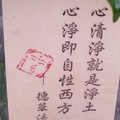 心清淨就是淨土
心淨即自性西方
德華法